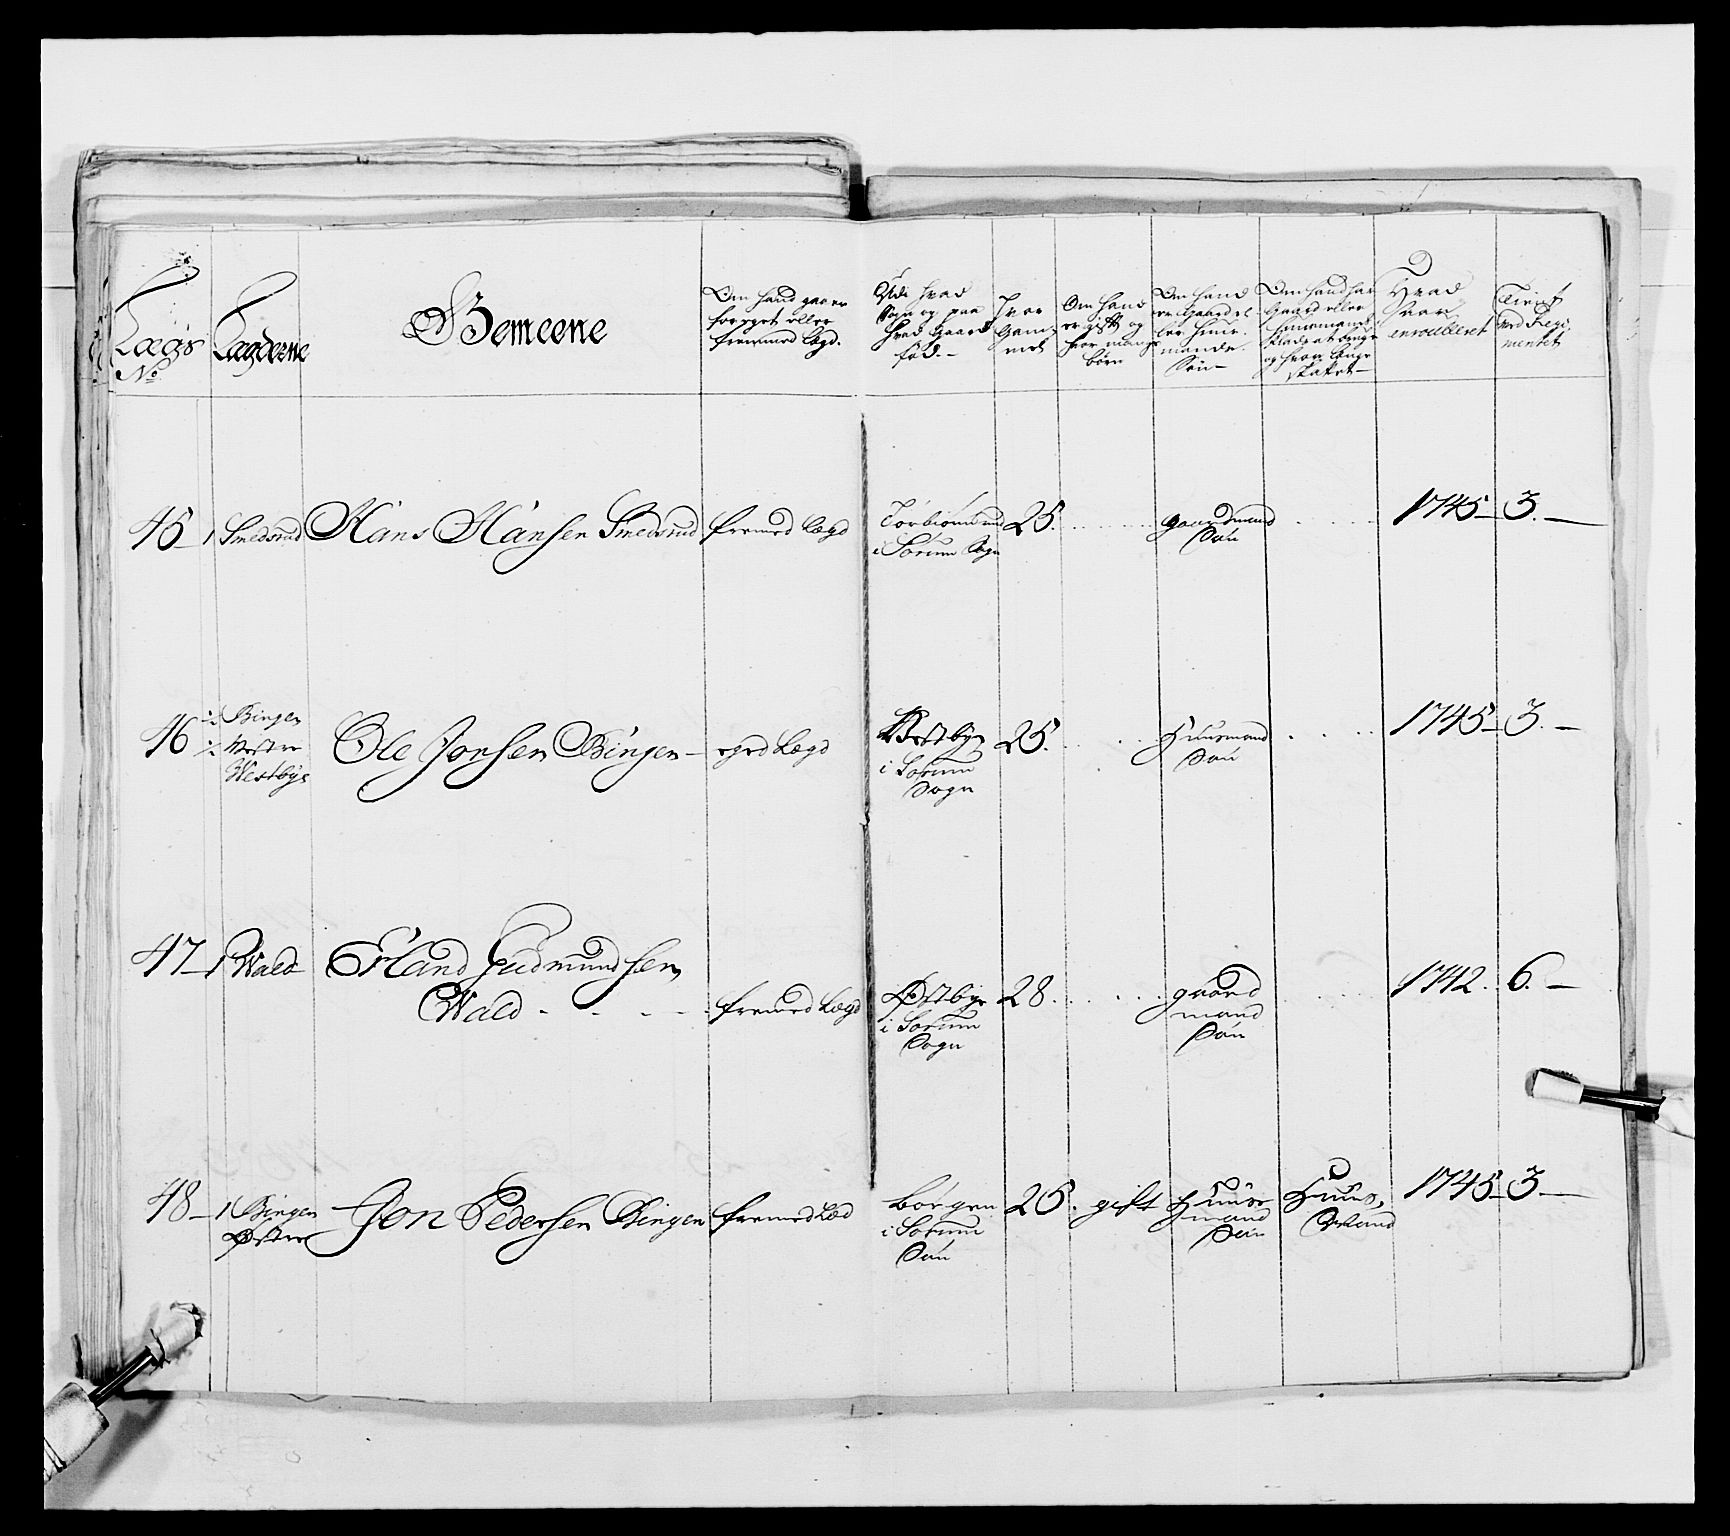 Lægs
No
Lægderne
Gemeene
Om hand gaar er
for eget eller
fremmed Lægd.
Udi hvad
Sogn og paa
hvad Gaard
fød.-
Hvor
Gam̅
mel
Om hand
er gift og
hvor mange
børn
Om hand
er Gaard el
ler Huus
mands
Søn-
Om hand har
Gaard eller
Huusmands
Plads at bruge
og hvor længe
Hvad
Aar
enroulleret
Tient
ved Regi
mentet
45 1 Smedsrud Hans Hansen Smedsrud fremed Lægd
i Sørum Sogn
25. gaardmand
Søn
1745 3.
46 ½ Bingen
½ Vestre
Westbye
Ole Jonsen Bingen eged Lægd
Vestbye
i Sørum
Sogn
25. Huusmand
Søn
1745 3.
47 1 Wald Erland Gudmundsen
Wald fremed Lægd
Østbye
i Sorum
Sogn
28. gaard
mand
Søn
1742. 6.
48 1 Bingen
Østre
Jon Pedersen Bingen fremed Læd
Børgen
i Sorum
Søn
25. gift Huus
mand
Søn
Huus
Mand
1745 3.